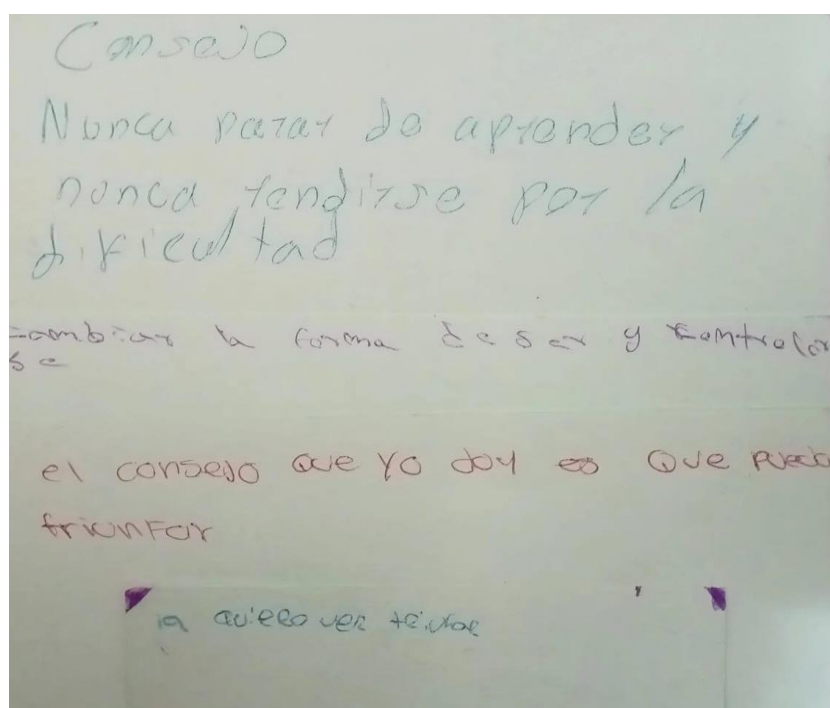 Consejo
Nunca parar de aprender y
nunca rendirse por la
dificultad
cambiar la forma de ser y controlar
se
el consejo que yo doy es que pueda
triunfar
quiero ver